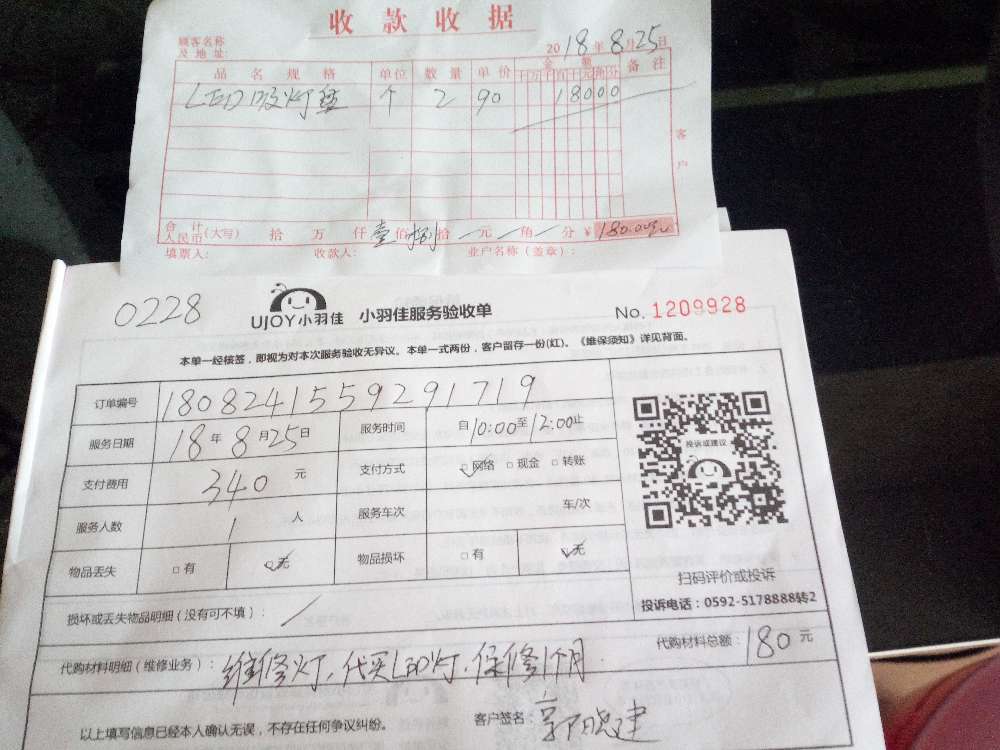 收款收据
顾客名称
及地址:
2018年8月25日
品名规格 单位 数量 单价 金额 备注
万千百十元角分
LED吸灯 个 2 90 18000
客户
合计
人民币(大写) 拾 万 仟 壹佰 捌拾 元 角 分 ¥180.00元
填票人: 收款人: 业户名称(盖章):
0228
UJOY小羽佳 小羽佳服务验收单 No. 1209928
本单一经核签，即视为对本次服务验收无异议。本单一式两份，客户留存一份(红)。《维保须知》详见背面。
订单编号 1808241559291719
服务日期 18年8月25日 服务时间 自10:00至12:00止
支付费用 340元 支付方式 网络 现金 转账
投诉或建议
服务人数 1人 服务车次 车/次
物品丢失 有 无 物品损坏 有 无
扫码评价或投诉
投诉电话：0592-5178888转2
损坏或丢失物品明细（没有可不填）：
代购材料总额：180元
代购材料明细（维修业务）：维修灯，代买LED灯，保修1个月
以上填写信息已经本人确认无误，不存在任何争议纠纷。 客户签名：郭晓建